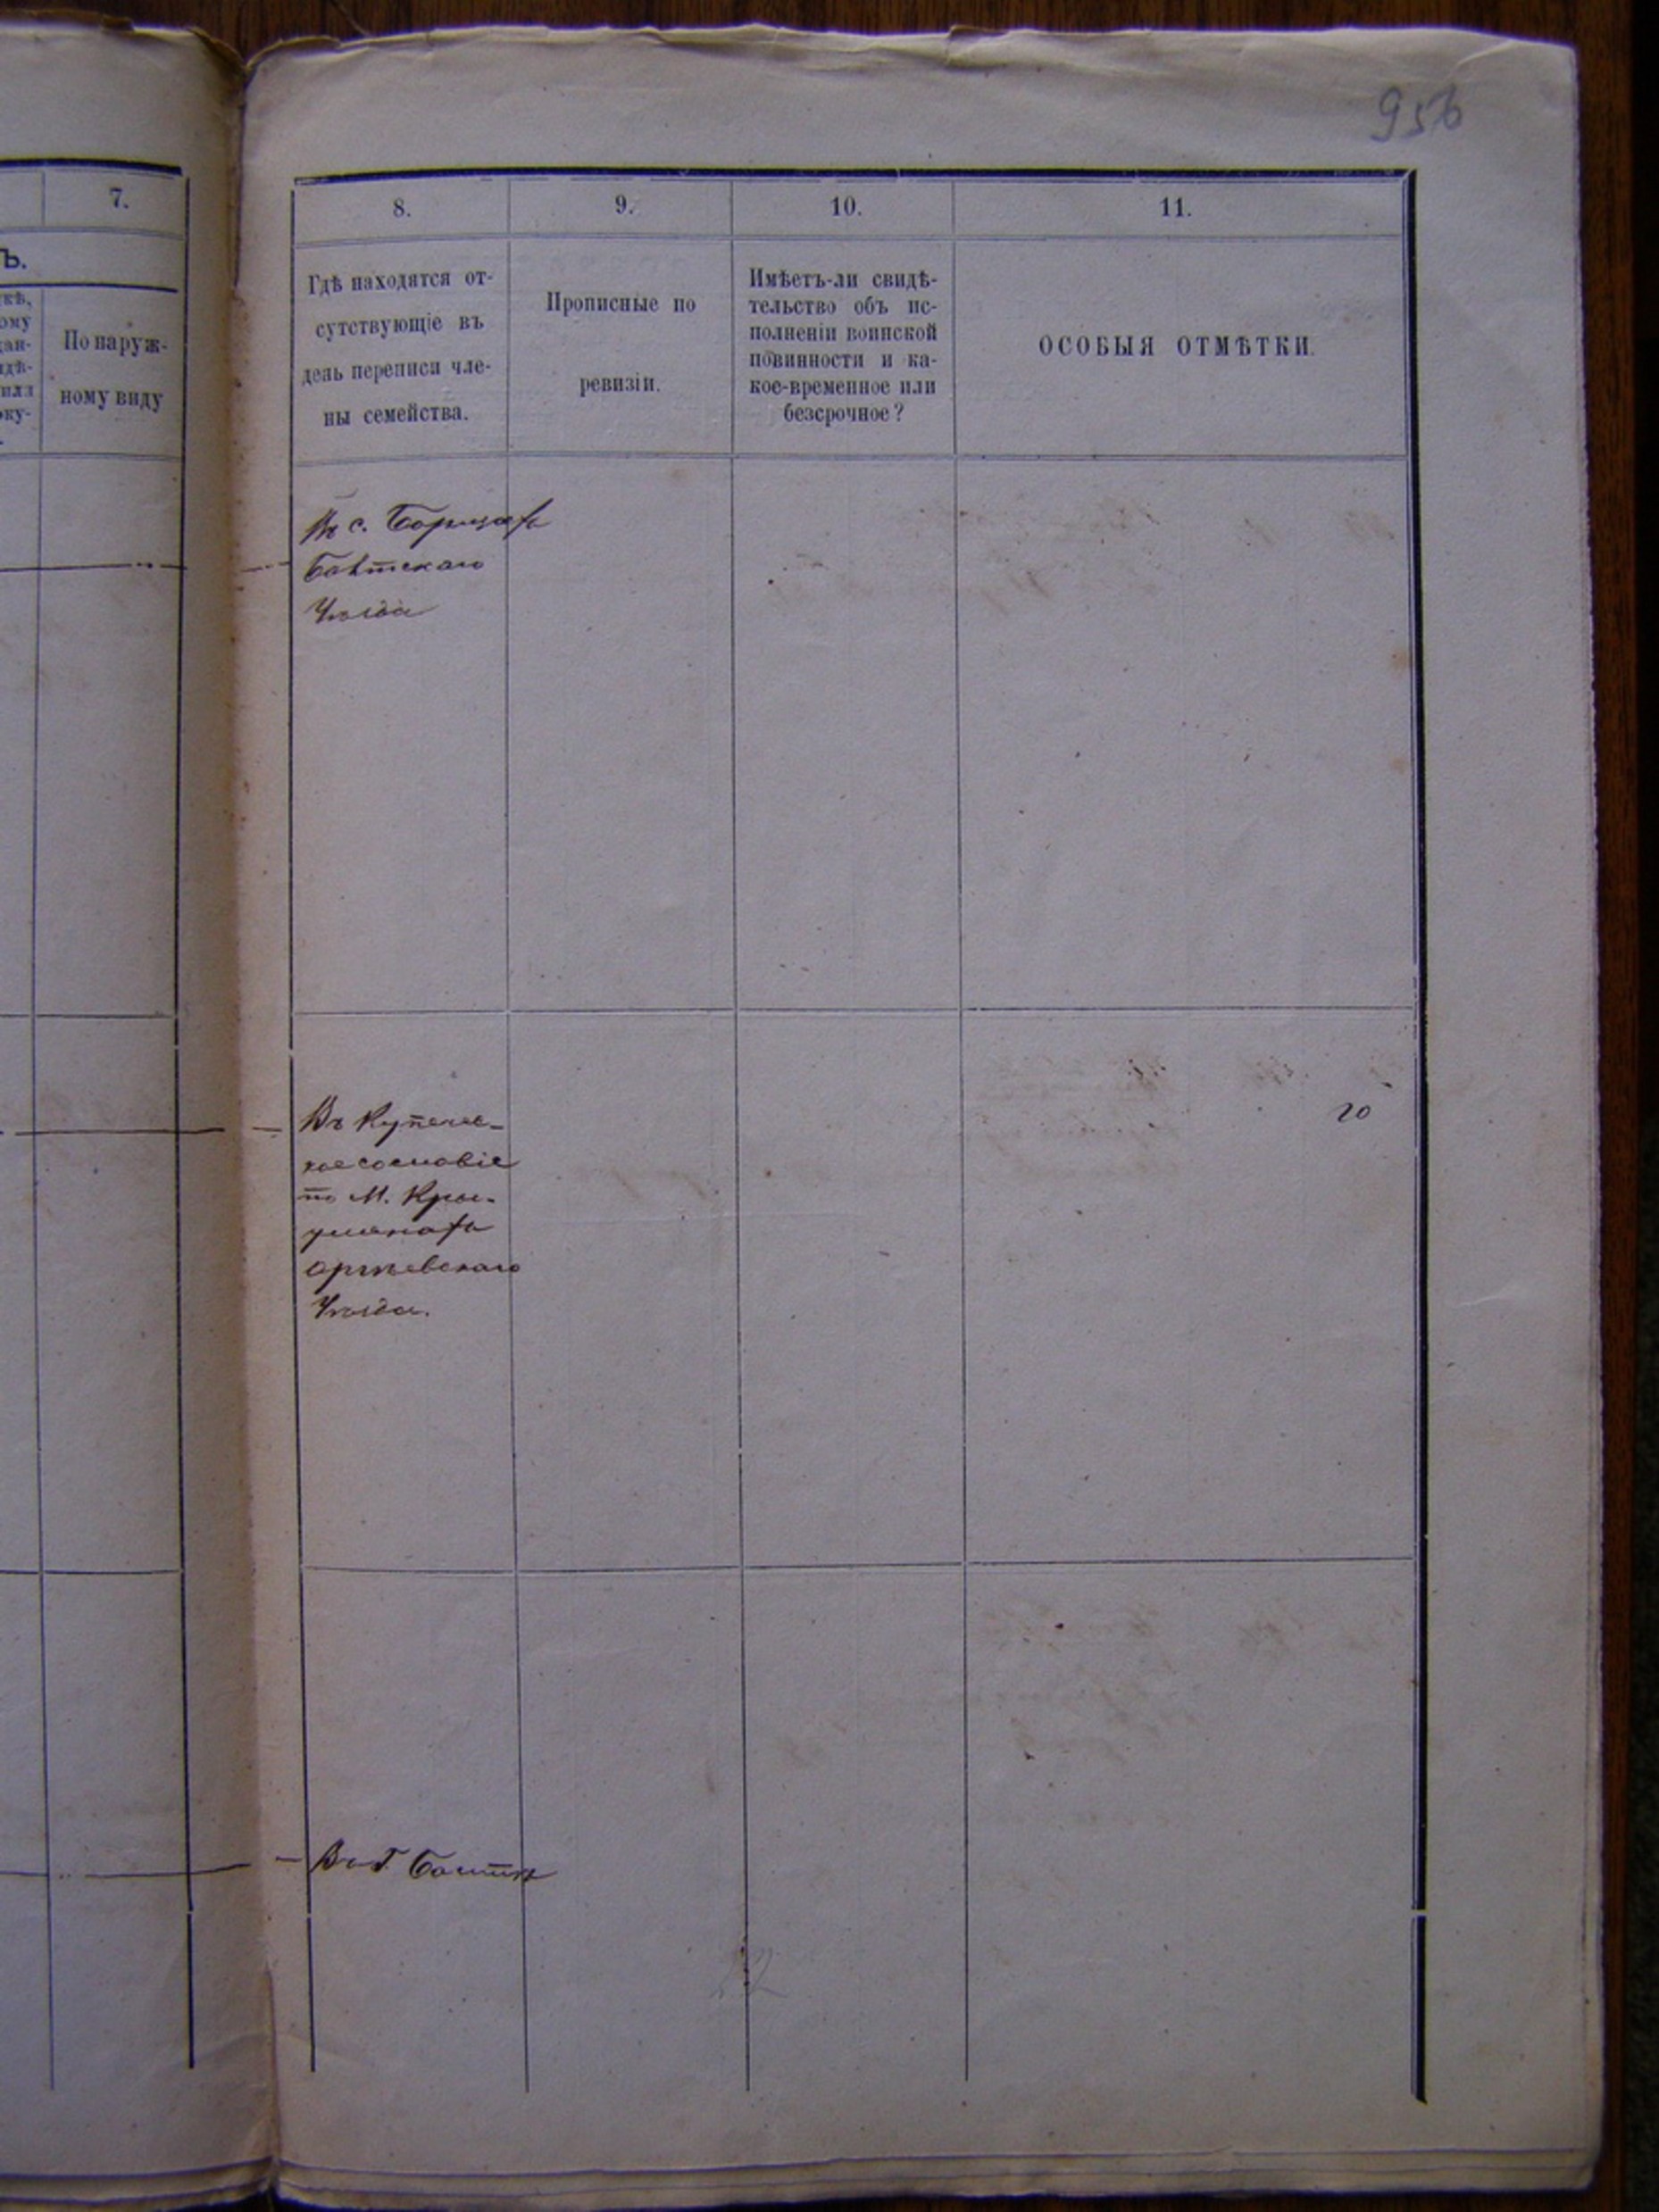 956
7.
Ъ.
По наруж-
ному виду
8.
9.
10.
11.
Гдѣ находятся от-
сутствующіе въ
день переписи чле-
ны семейства.
Прописные по
ревизіи.
Имѣетъ-ли свидѣ-
тельство объ ис-
полненіи воинской
повинности и ка-
кое-временное или
безсрочное?
ОСОБЫЯ ОТМѢТКИ.
Въ с.
Балтскаго
Уѣзда
Въ Купечес-
кое сословіе
по М. Кры-
Оргѣевскаго
Уѣзда.
20
Въ Г. Балтѣ